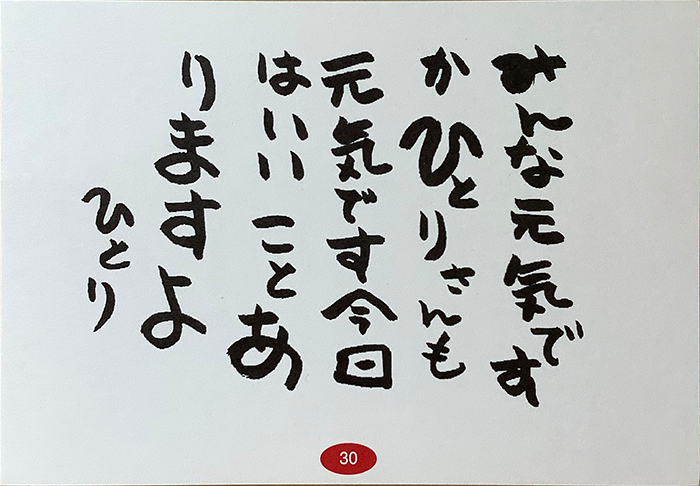 みんな元気です
かひとりさんも
元気です今回
はいいことあ
りますよ
ひとり
30